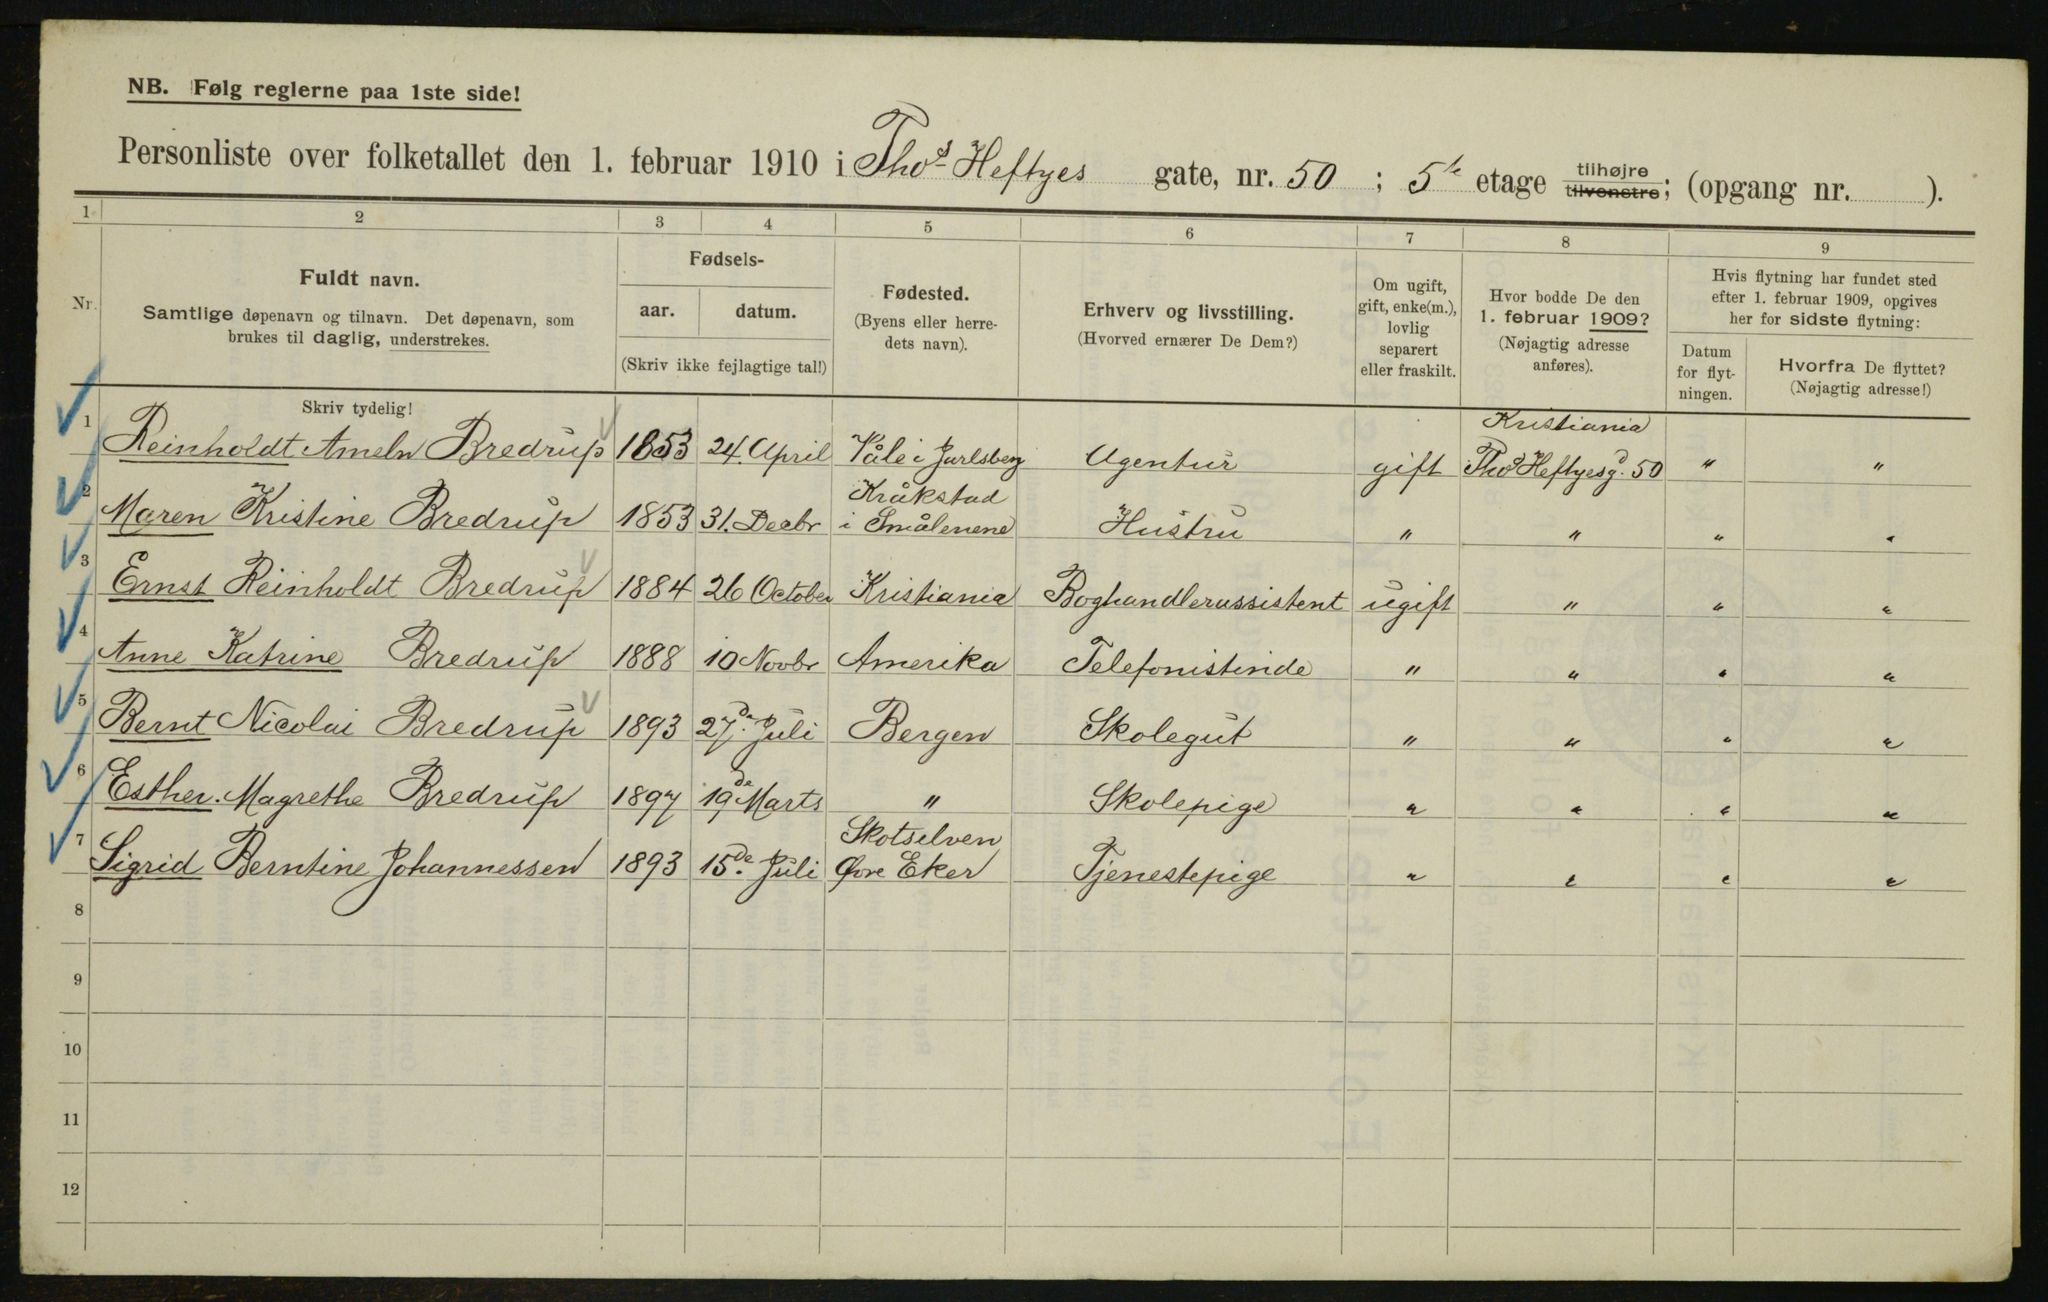 NB. Følg reglerne paa 1ste side!
Personliste over folketallet den 1. februar 1910 i Thos Heftyes gate, nr. 50 ; 5te etage tilhøjre tilvenstre; (opgang nr. ).
1 2 3 4 5 6 7 8 9
Nr.
Fuldt navn.
Samtlige døpenavn og tilnavn. Det døpenavn, som
brukes til daglig, understrekes.
Skriv tydelig!
Fødsels-
aar. datum.
(Skriv ikke fejlagtige tal!)
Fødested.
(Byens eller herre-
dets navn).
Erhverv og livsstilling.
(Hvorved ernærer De Dem?)
Om ugift,
gift, enke(m.),
lovlig
separert
eller fraskilt.
Hvor bodde De den
1. februar 1909?
(Nøjagtig adresse
anføres).
Hvis flytning har fundet sted
efter 1. februar 1909, opgives
her for sidste flytning:
Datum
for flyt-
ningen.
Hvorfra De flyttet?
(Nøjagtig adresse!)
Kristiania
1 Reinholdt Ameln Bredrup 1853 24. April Våle i Jarlsberg Agentur gift Thos Heftyesg. 50 " "
Kråkstad
2 Maren Kristine Bredrup 1853 31. Decbr i Smålenene Hustru " " " "
3 Ernst Reinholdt Bredrup 1884 26 October Kristiania Boghandlerassistent ugift " " "
4 Anne Katrine Bredrup 1888 10 Novbr Amerika Telefonistinde " " " "
5 Bernt Nicolai Bredrup 1893 27de Juli Bergen Skolegut " " " "
6 Esther. Magrethe Bredrup 1897 19de Marts " Skolepige " " " "
Skotselven
7 Sigrid Berntine Johannessen 1893 15de. Juli Øvre Eker Tjenestepige " " " "
8
9
10
11
12